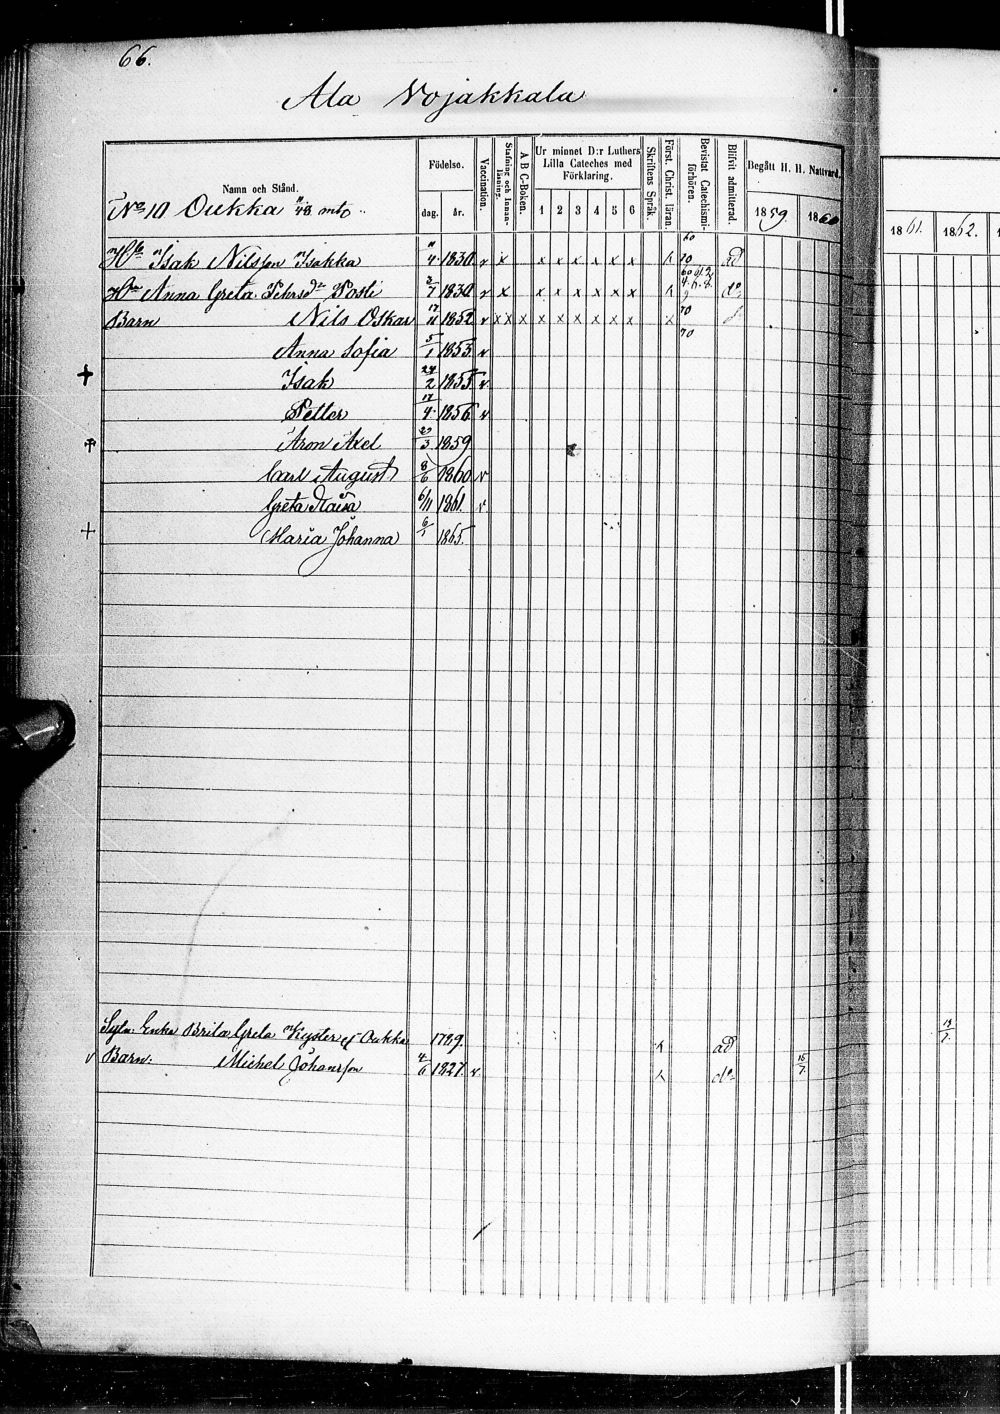 66.
Ala Vojakkala
Namn och Stånd. Födelse. dag. år. Vaccination. Stafning och Innanläsning. A B C-Boken. Ur minnet D:r Luthers Lilla Cateches med Förklaring. 1 2 3 4 5 6 Skriftens Språk. Först. Christ. läran. Bevistat Catechismiförhören. Blifvit admitterad. Begått H. H. Nattvard. 1859 1860 1861. 1862.
No 10 Oukka mto
Isak Nilsson Isakka 4 1830 v x x x x x x x 70 ad
Anna Greta Pehrsdr Posti 3/7 1830 v x x x x x x x do
Barn Nils Oskar 17/11 1852 v x x x x x x x x x 70
70
Anna Sofia 5/1 1853 v
+ Isak 24/2 1855 v
Petter 17/4 1856 v
Aron Axel 1859
Carl August 8/6 1860 v
Greta Kaisa 6/11 1861. v
+ Maria Johanna 6/1 1865.
Enka Brita Greta Oukka 1789. ad
v Barn: Michel Johansson 4/6 1827. v do